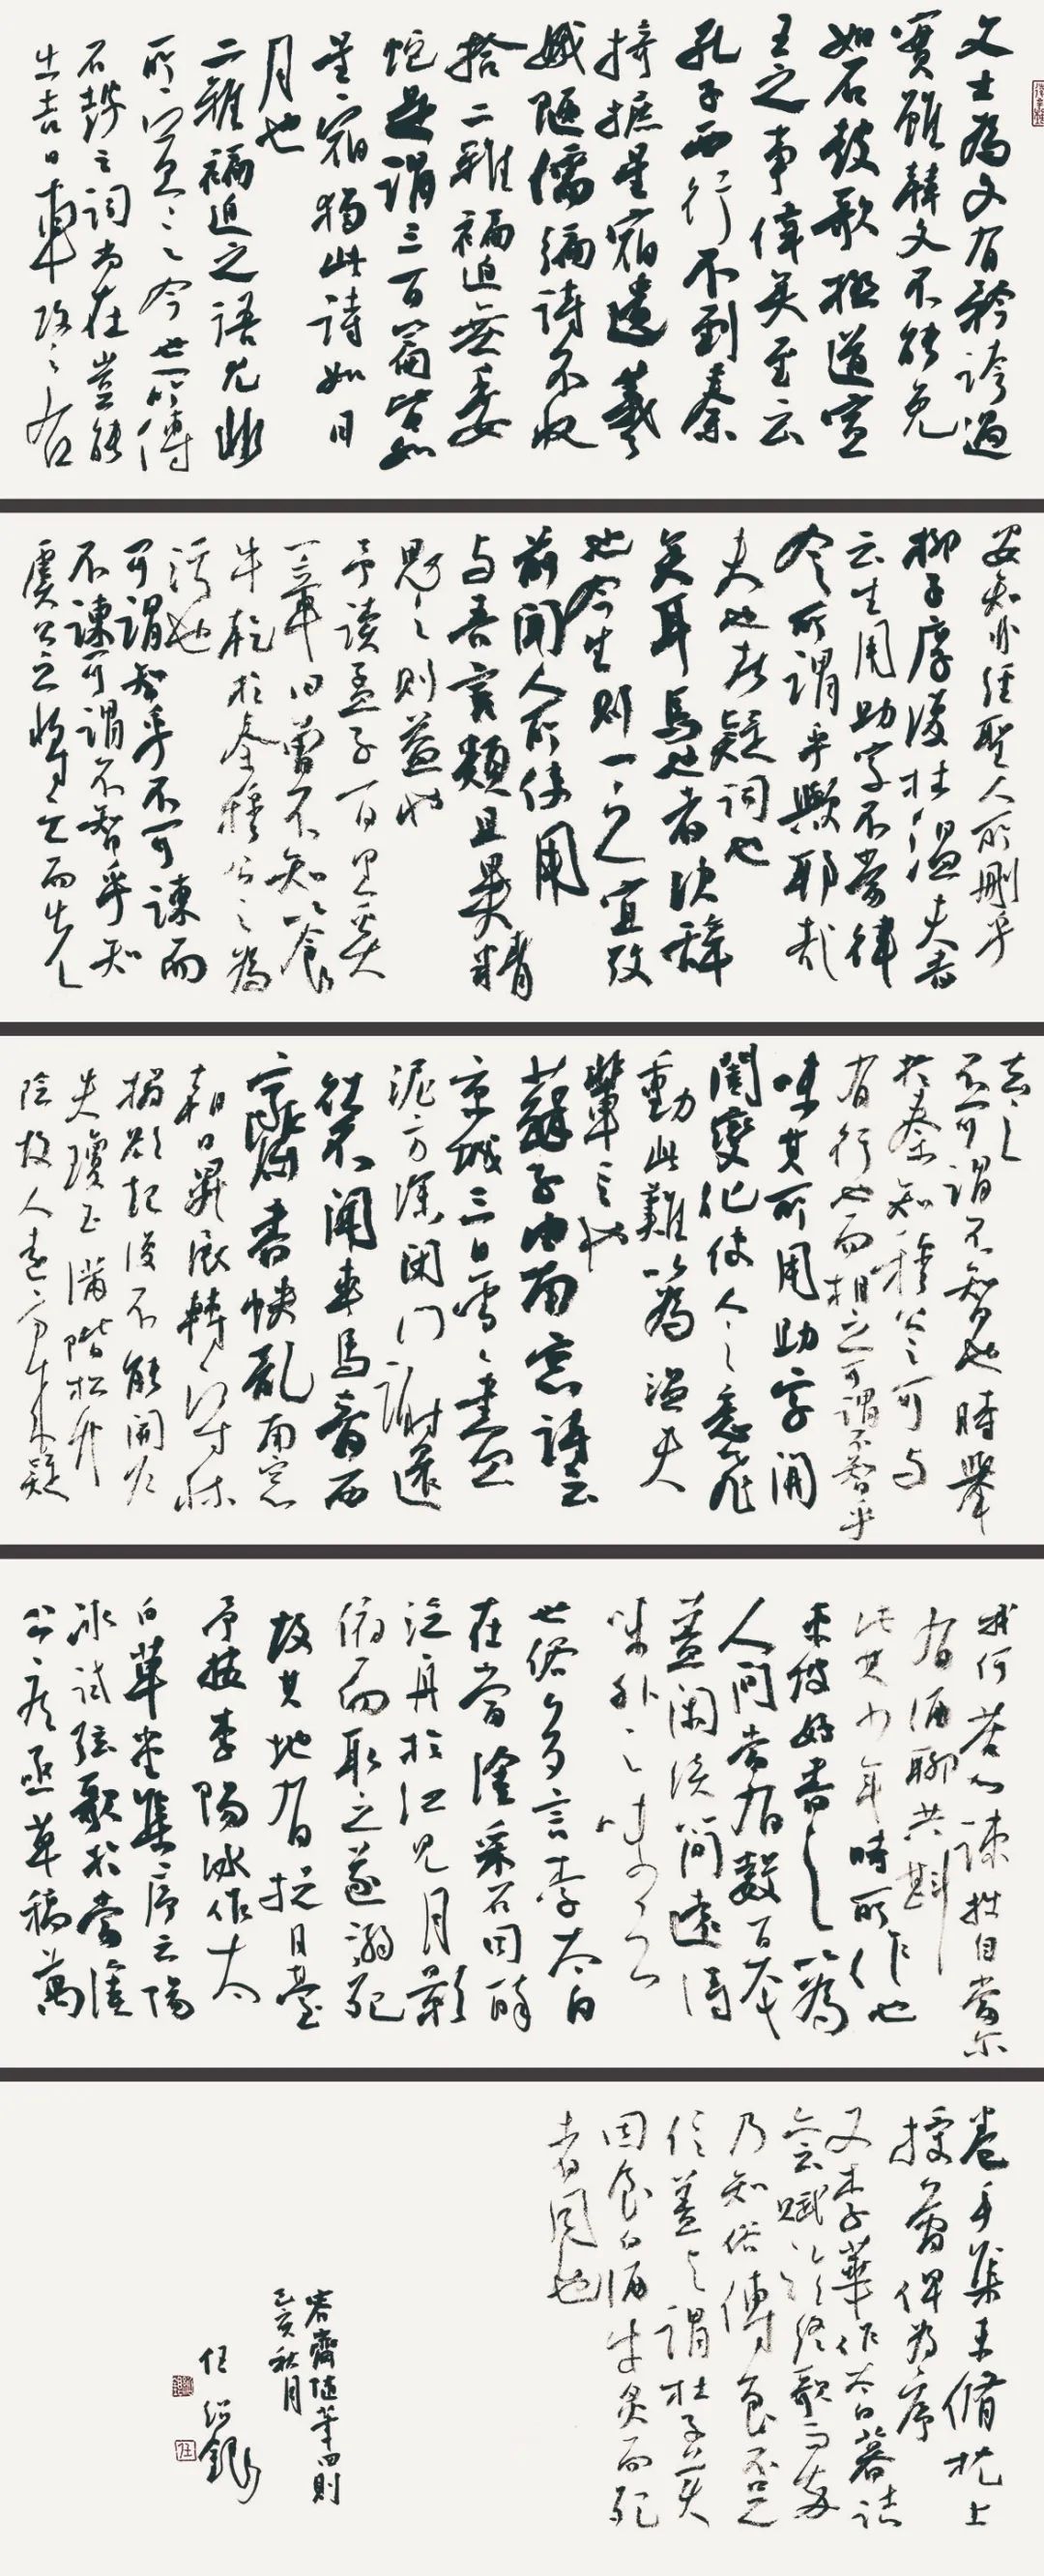 文士為文有矜誇過
實雖韓文不能免
如石鼓歌極道宣
王之事偉矣至云
孔子西行不到秦
掎摭星宿遺羲
娥陋儒編詩不收
拾二雅褊迫無委
蛇是謂三百篇皆如
星宿獨此詩如日
月也
二雅褊迫之語尤非
所宜言今世所傳
石鼓之詞尚在豈能
出吉日車攻之右
安知非經聖人所刪乎
柳子厚復杜溫夫書
云生用助字不當律
令所謂乎歟耶哉
夫也者疑詞也
矣耳焉也者決辭
也今生則一之宜考
前聞人所使用
與吾言類且異精
思之則益也
予讀孟子百里奚
一章曰曾不知以食
牛干於秦穆公之為
污也
可謂智乎不可諫而
不諫可謂不智乎知
虞公之將亡而先
去之
不可謂不智也時舉
於秦知穆公之可與
有行也而相之可謂不智乎
味其所用助字開
闔變化使人之意飛
動此難以為溫夫
輩言也
蘇子由南窗詩云
京城三日雪雪盡
泥方深閉門謝還
往不聞車馬音西
齋書帙亂南窗
朝日昇展轉守床
榻欲起復不能開戶
失瓊玉滿階松竹
陰故人遠方來疑
我何苦心疎拙自當爾
有酒聊共斟
此其少年時所作也
東坡好書之以為
人間當有數百本
蓋閑淡簡遠得
味外之味云
世俗多言李太白
在當塗采石因醉
泛舟於江見月影
俯而取之遂溺死
故其地有捉月臺
予按李陽冰作太
白草堂集序云陽
冰試弦歌於當塗
公疾亟草稿萬
卷手集未修枕上
授簡俾為序
又李華作太白墓誌
亦云賦臨終歌而卒
乃知俗傳良不足
信蓋與謂杜子美
因食白酒牛炙而死
者同也
容齋隨筆四則
乙亥秋月
任紹